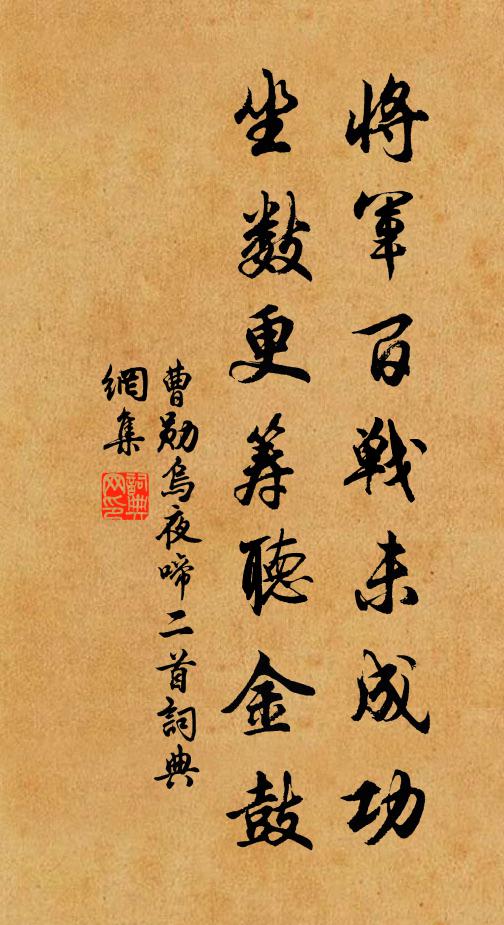 將軍百戰未成功
坐數更筹聽金鼓
曹勛烏夜啼二首詞典
網集
詞典網印